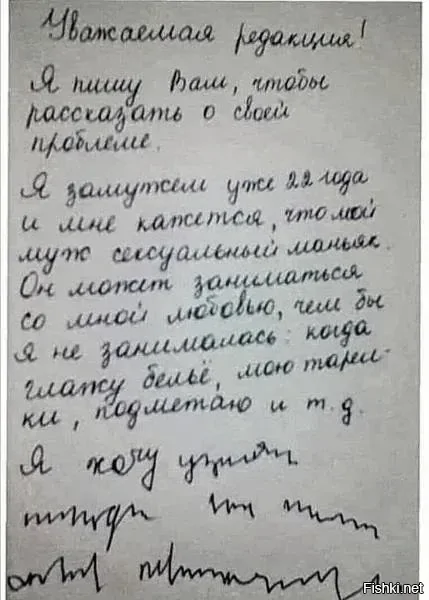 Уважаемая редакция!
Я пишу Вам, чтобы
рассказать о своей
проблеме.
Я замужем уже 22 года
и мне кажется, что мой
муж сексуальный маньяк.
Он может заниматься
со мной любовью, чем бы
я не занималась: когда
глажу бельё, мою тарел-
ки, подметаю и т.д.
Я хочу
Fishki.net